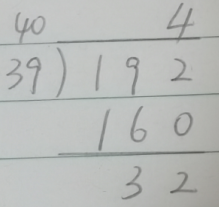 40 4
39 ) 1 9 2
1 6 0
3 2